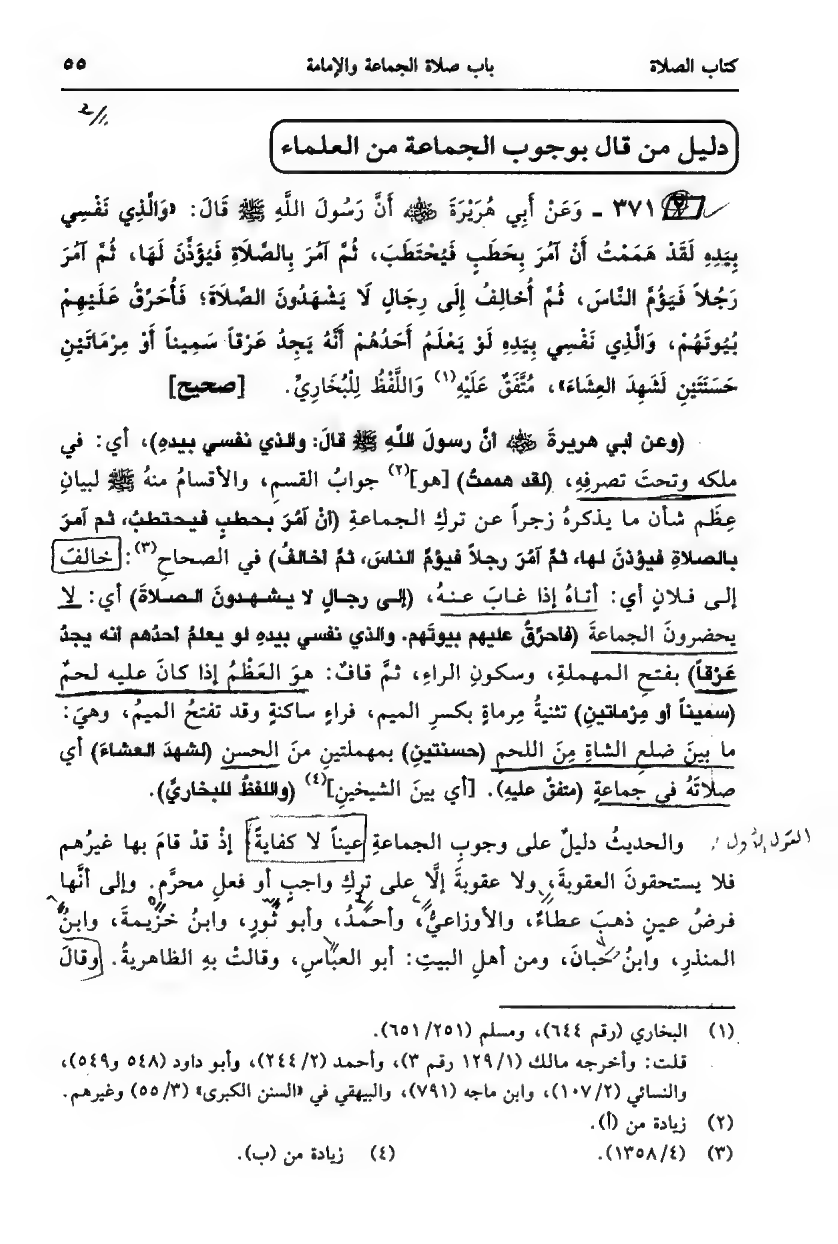 كتاب الصلاة باب صلاة الجماعة والإمامة ٥٥
دليل من قال بوجوب الجماعة من العلماء
٣٧١ - وَعَنْ أَبِي هُرَيْرَةَ ﷺ أَنَّ رَسُولَ اللَّهِ ﷺ قَالَ: «وَالَّذِي نَفْسِي
بِيَدِهِ لَقَدْ هَمَمْتُ أَنْ آمُرَ بِحَطَبٍ فَيُحْتَطَبَ، ثُمَّ آمُرَ بِالصَّلَاةِ فَيُؤَذَّنَ لَهَا، ثُمَّ آمُرَ
رَجُلاً فَيَؤُمَّ النَّاسَ، ثُمَّ أُخَالِفُ إِلَى رِجَالٍ لَا يَشْهَدُونَ الصَّلَاةَ؛ فَأُحَرِّقُ عَلَيْهِمْ
بُيُوتَهُمْ، وَالَّذِي نَفْسِي بِيَدِهِ لَوْ يَعْلَمُ أَحَدُهُمْ أَنَّهُ يَجِدُ عَرْقاً سَمِيناً أَوْ مِرْمَاتَيْنِ
حَسَنَتَيْنِ لَشَهِدَ العِشَاءَ»، مُتَّفَقٌ عَلَيْهِ(١) وَاللَّفْظُ لِلْبُخَارِيِّ. [صحيح]
(وعن أبي هريرةَ رضي الله عنه أنَّ رسولَ اللَّهِ ﷺ قالَ: والذي نفسي بيدهِ)، أي: في
ملكه وتحتَ تصرفِهِ، (لقد هممتُ) [هو](٢) جوابُ القسمِ، والأقسامُ منهُ ﷺ لبيانِ
عِظَمِ شأن ما يذكرهُ زجراً عن تركِ الجماعةِ (أنْ آمُرَ بحطبٍ فيحتطبُ، ثم آمرَ
بالصلاةِ فيؤذنَ لها، ثمَّ آمُرَ رجلاً فيؤمَّ الناسَ، ثمَّ أخالفُ) في الصحاحِ(٣): خالفَ
إلى فلانٍ أي: أتاهُ إذا غابَ عنهُ، (إلى رجالٍ لا يشهدونَ الصلاةَ) أي: لا
يحضرونَ الجماعةَ (فأحرِّقُ عليهم بيوتَهم. والذي نفسي بيدهِ لو يعلمُ أحدُهم أنه يجدُ
عَرْقاً) بفتحِ المهملةِ، وسكونِ الراءِ، ثمَّ قافٌ: هوَ العَظْمُ إذا كانَ عليه لحمٌ
(سميناً أو مِرْماتينِ) تثنيةُ مِرماةٍ بكسرِ الميم، فراءٍ ساكنةٍ وقد تفتحُ الميمُ، وهيَ:
ما بينَ ضلعِ الشاةِ مِنَ اللحمِ (حسنتينِ) بمهملتينِ منَ الحسنِ (لشهدَ العشاءَ) أي
صلاتَهُ في جماعةٍ (متفقٌ عليهِ). [أي بينَ الشيخينِ](٤) (واللفظُ للبخاريِّ).
والحديثُ دليلٌ على وجوبِ الجماعةِ عيناً لا كفايةً إذْ قدْ قامَ بها غيرُهم القول الأول
فلا يستحقونَ العقوبةَ، ولا عقوبةَ إلَّا على تركِ واجبٍ أو فعلِ محرَّمٍ. وإلى أنَّها
فرضُ عينٍ ذهبَ عطاءٌ، والأوزاعيُّ، وأحمدُ، وأبو ثورٍ، وابنُ خزيمةَ، وابنُ
المنذرِ، وابنُ حبانَ، ومن أهلِ البيتِ: أبو العباسِ، وقالتْ بهِ الظاهريةُ. وقالَ
(١) البخاري (رقم ٦٤٤)، ومسلم (٦٥١/٢٥١).
قلت: وأخرجه مالك (١٢٩/١ رقم ٣)، وأحمد (٢٤٤/٢)، وأبو داود (٥٤٨ و٥٤٩)،
والنسائي (١٠٧/٢)، وابن ماجه (٧٩١)، والبيهقي في «السنن الكبرى» (٥٥/٣) وغيرهم.
(٢) زيادة من (أ).
(٣) (١٣٥٨/٤). (٤) زيادة من (ب).